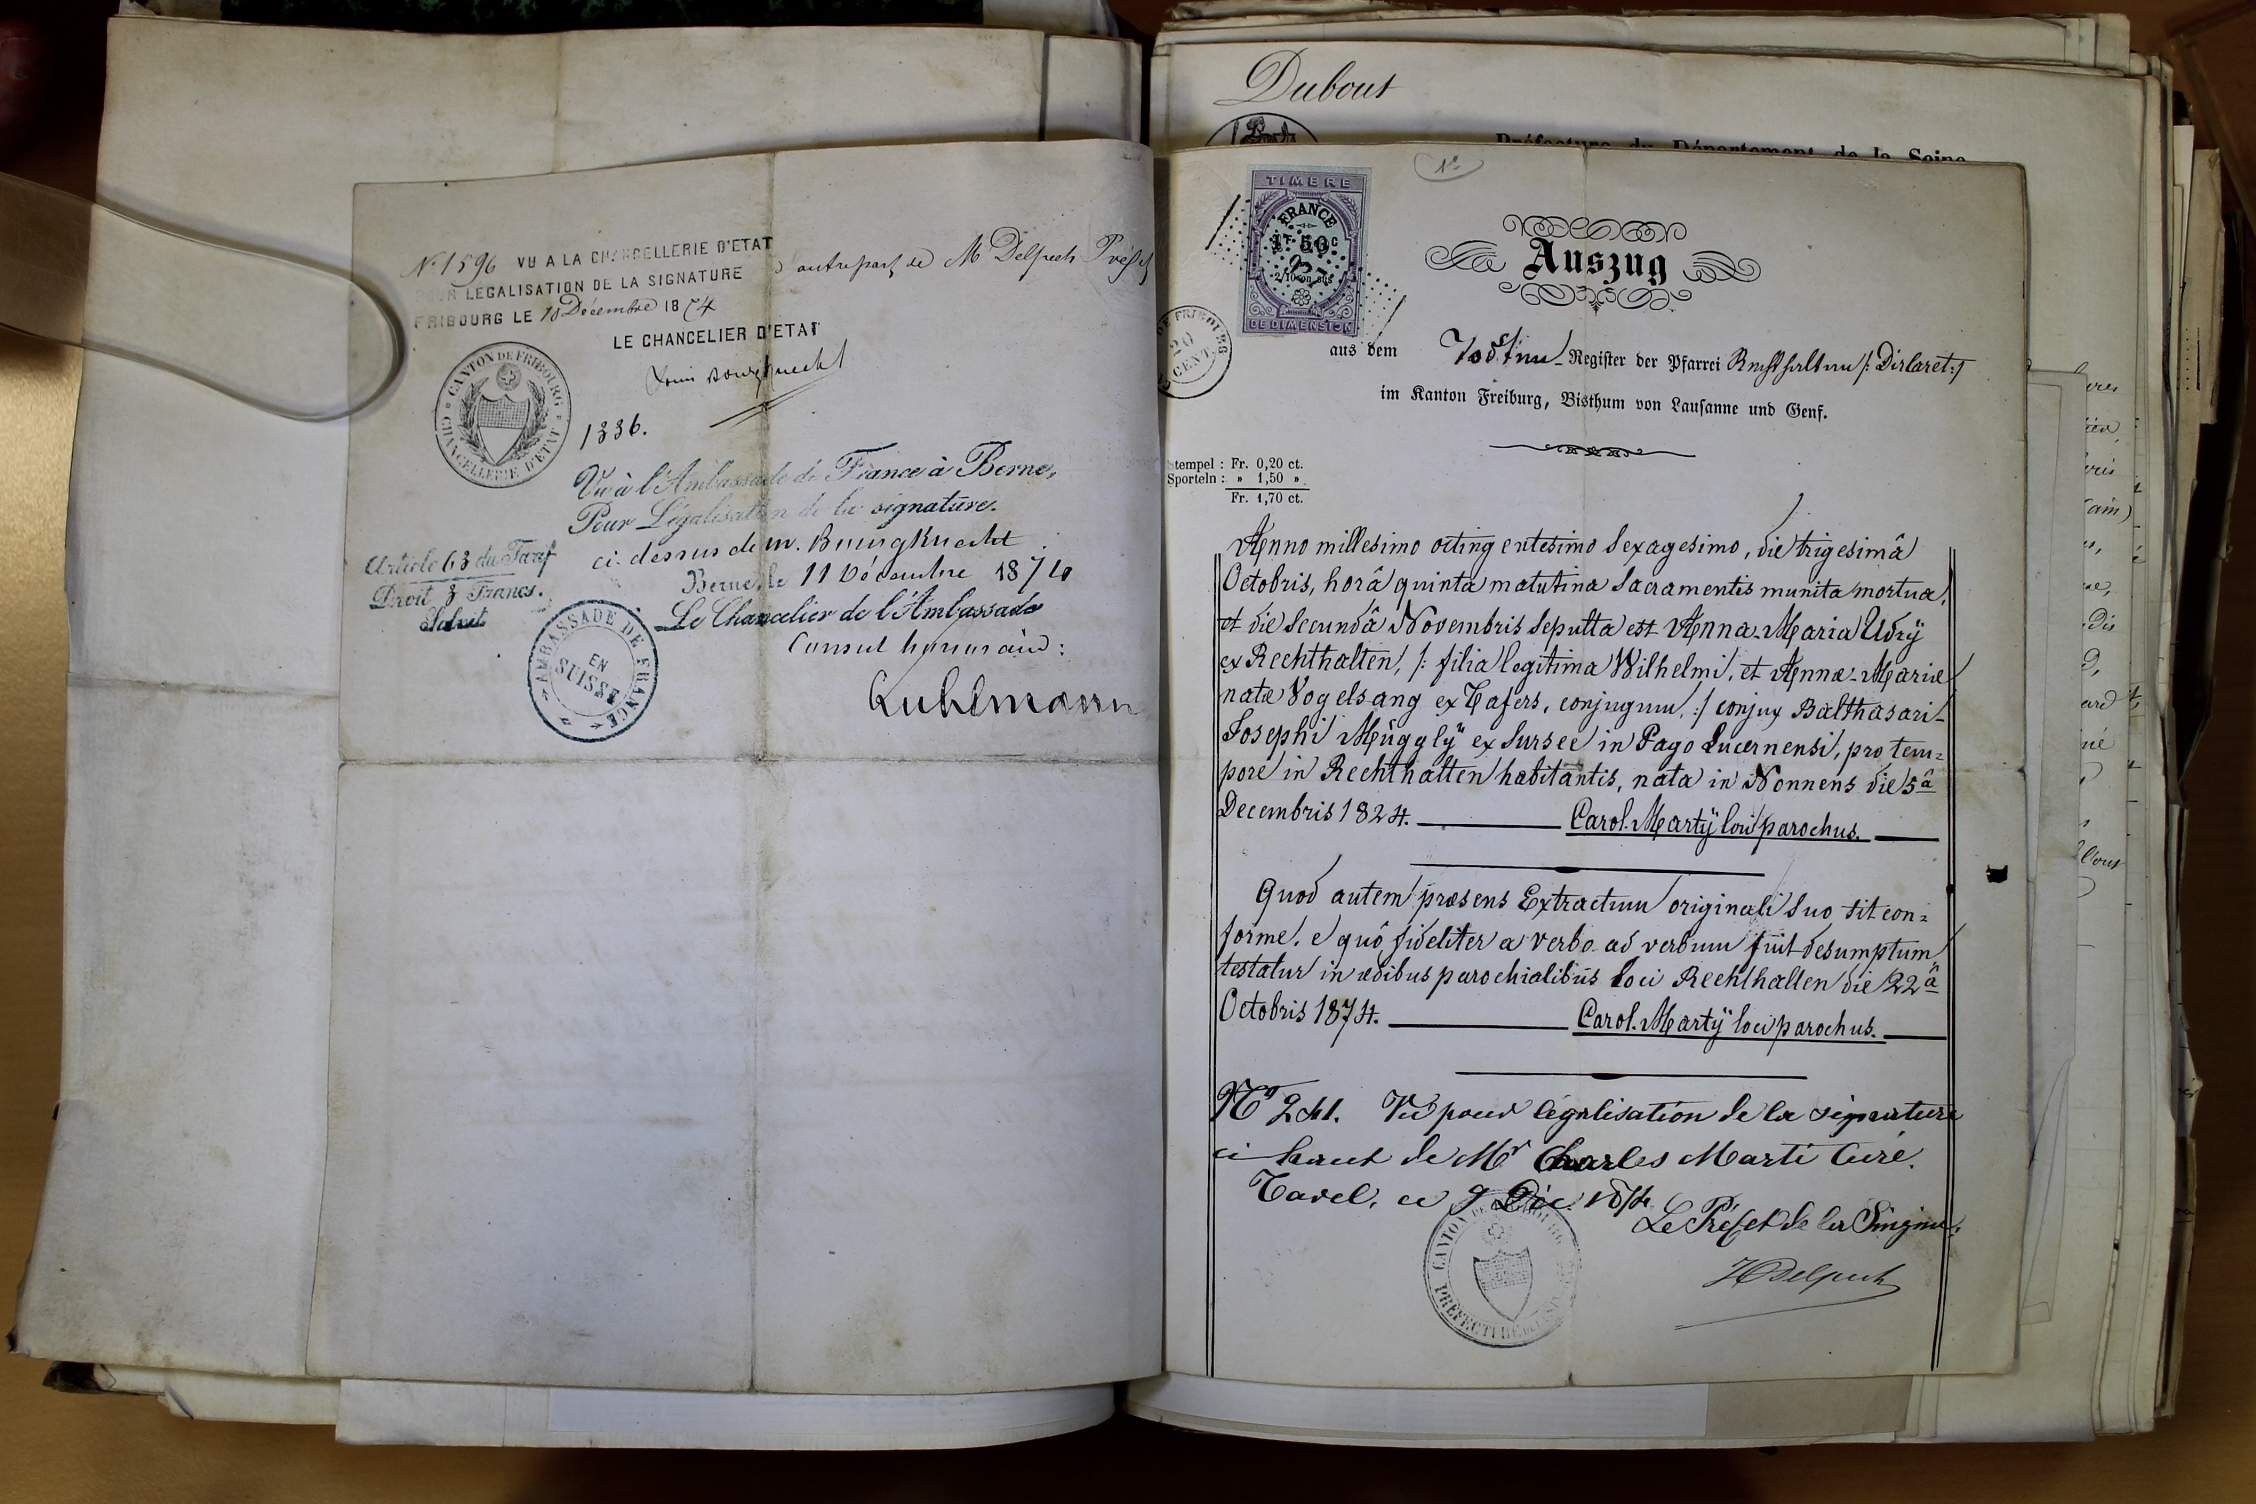 Nº 1596 VU A LA CHANCELLERIE D'ETAT
POUR LÉGALISATION DE LA SIGNATURE
d'autrepart de M Delpech Préfet
FRIBOURG LE 10 Décembre 1874
LE CHANCELIER D'ETAT
Louis Bourgknecht
CANTON DE FRIBOURG
CHANCELLERIE D'ETAT
1336.
Vu à l'Ambassade de France à Berne,
Pour Légalisation de la signature.
ci-dessus de m. Bourgknecht
Berne, le 11 Décembre 1874
Le Chancelier de l'Ambassade
Consul honoraire:
Article 63 du Tarif
Droit 3 Francs.
Solvit
AMBASSADE DE FRANCE
EN
SUISSE
Dubout
Préfecture du Département de la Seine
Nº
TIMBRE
FRANCE
1F 50C
2/10 en sus
DE DIMENSION
DE FRIBOURG
20
CENT.
Auszug
aus dem Todten-Register der Pfarrei Rechthalten /: Dirlaret:/
im Kanton Freiburg, Bisthum von Lausanne und Genf.
Stempel : Fr. 0,20 ct.
Sporteln : » 1,50 »
Fr. 1,70 ct.
Anno millesimo octingentesimo sexagesimo, die trigesimâ
Octobris, horâ quinta matutina sacramentis munita mortua,
et die secundâ Novembris sepulta est Anna-Maria Udrÿ
ex Rechthalten, /: filia legitima Wilhelmi, et Annæ-Mariæ
natæ Vogelsang ex Tafers, conjugum, :/ conjux Balthasari-
Josephi Müggly ex Sursee in Pago Lucernensi, pro tem=
pore in Rechthalten habitantis, nata in Nonnens die 5â
Decembris 1824. Carol. Martÿ loci parochus.
Quod autem præsens Extractum originali suo sit con=
forme, e quô fideliter a verbo ad verbum fuit desumptum
testatur in ædibus parochialibus loci Rechthalten die 22â
Octobris 1874. Carol. Martÿ loci parochus.
Nº 241. Vu pour légalisation de la signature
ci haut de Mr Charles Marti Curé.
Tavel, ce 9 Déc. 1874
Le Préfet de la Singine.
Delpech
CANTON DE FRIBOURG
PRÉFECTURE